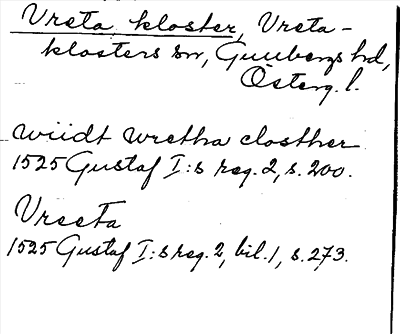 Vreta kloster, Vreta-
klosters sn, Gullbergs hd,
Österg. l.
wiidt wretha closther
1525 Gustaf I:s reg. 2, s. 200.
Vreeta
1525 Gustaf I:s reg. 2, bil. 1, s. 273.